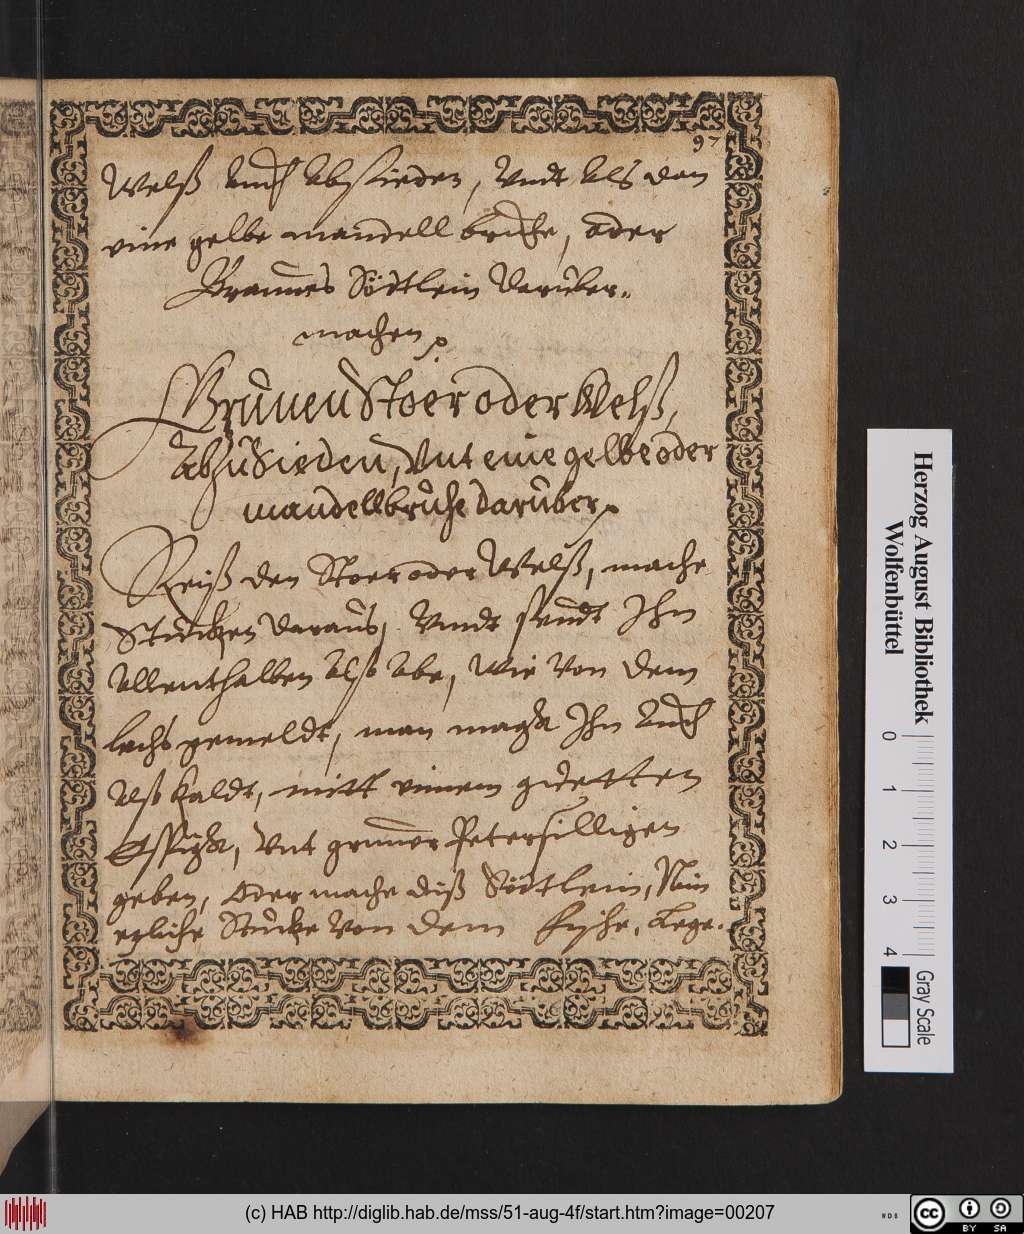 97
Welß Auch Absieden, Vndt Als dan
eine gelbe mandell bruhe, oder
Braunes Södtlein daruber
machen.
Grünen Stoer oder Welß,
AbZuSieden, Vnt eine gelbe oder
mandellbruhe daruber
Reiß den Stoer oder Welß, mache
Stucken daraus, Vnndt seudt Ihn
Allenthalben Alß Abe, Wie Von dem
lachs gemeldt, man magk Ihn Auch
Alß kaldt, mitt einem gudetten
Essigk, Vnt gruner Petersilligen
geben, Oder mache diß Södtlein, Nim
ezliche Stucke Von dem fische, Lege
Herzog August Bibliothek
Wolfenbüttel
0
1
2
3
4
Gray Scale
(c) HAB http://diglib.hab.de/mss/51-aug-4f/start.htm?image=00207
WDB
cc BY SA